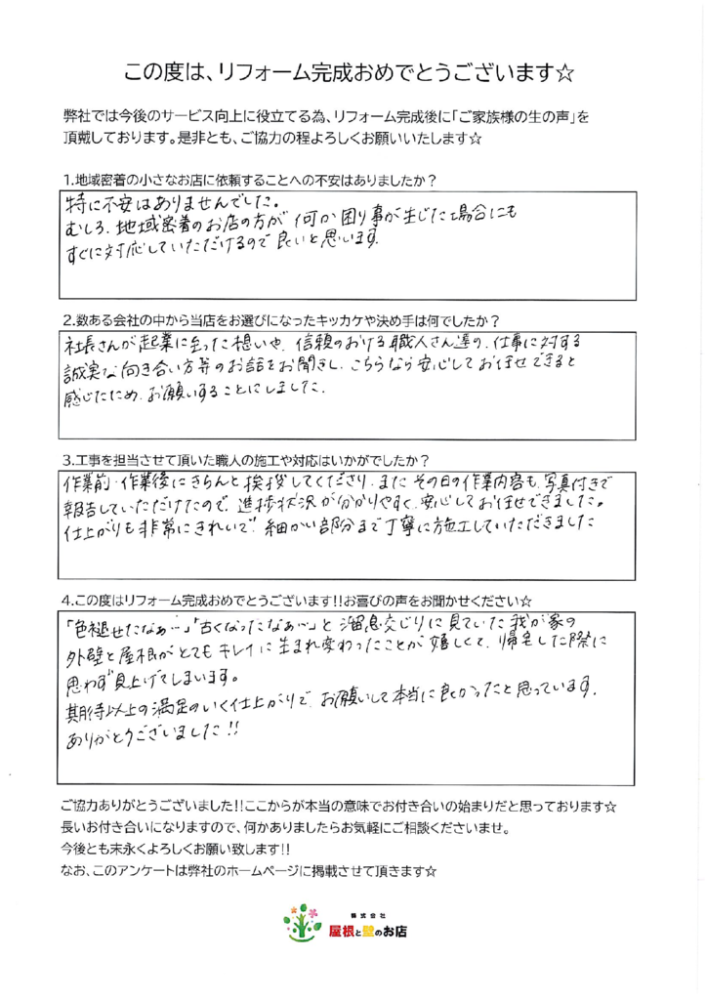 この度は、リフォーム完成おめでとうございます☆
弊社では今後のサービス向上に役立てる為、リフォーム完成後に「ご家族様の生の声」を
頂戴しております。是非とも、ご協力の程よろしくお願いいたします☆
1.地域密着の小さなお店に依頼することへの不安はありましたか？
特に不安はありませんでした。
むしろ、地域密着のお店の方が何か困り事が生じた場合にも
すぐに対応していただけるので良いと思います。
2.数ある会社の中から当店をお選びになったキッカケや決め手は何でしたか？
社長さんが起業に至った想いや、信頼のおける職人さん達の、仕事に対する
誠実な向き合い方等のお話をお聞きし、こちらなら安心してお任せできると
感じたため、お願いすることにしました。
3.工事を担当させて頂いた職人の施工や対応はいかがでしたか？
作業前・作業後にきちんと挨拶してくださり、またその日の作業内容も、写真付きで
報告していただけたので、進捗状況が分かりやすく、安心してお任せできました。
仕上がりも非常にきれいで、細かい部分まで丁寧に施工していただきました
4.この度はリフォーム完成おめでとうございます!!お喜びの声をお聞かせください☆
「色褪せたなぁ…」「古くなったなぁ…」と溜息交じりに見ていた我が家の
外壁と屋根がとてもキレイに生まれ変わったことが嬉しくて、帰宅した際に
思わず見上げてしまいます。
期待以上の満足のいく仕上がりで、お願いして本当に良かったと思っています。
ありがとうございました!!
ご協力ありがとうございました!!ここからが本当の意味でお付き合いの始まりだと思っております☆
長いお付き合いになりますので、何かありましたらお気軽にご相談くださいませ。
今後とも末永くよろしくお願い致します!!
なお、このアンケートは弊社のホームページに掲載させて頂きます☆
株式会社
屋根と壁のお店